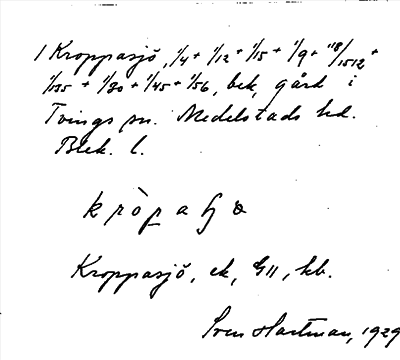 1 Kroppasjö, 1/4 + 1/12 + 1/15 + 1/9 + 118/1512 +
1/135 + 1/80 + 1/45 + 1/56, bek, gård i
Tvings sn. Medelstads hd.
Blek. l.
Kroppasjö, ek, GII, hb.
Sven Hartman, 1929